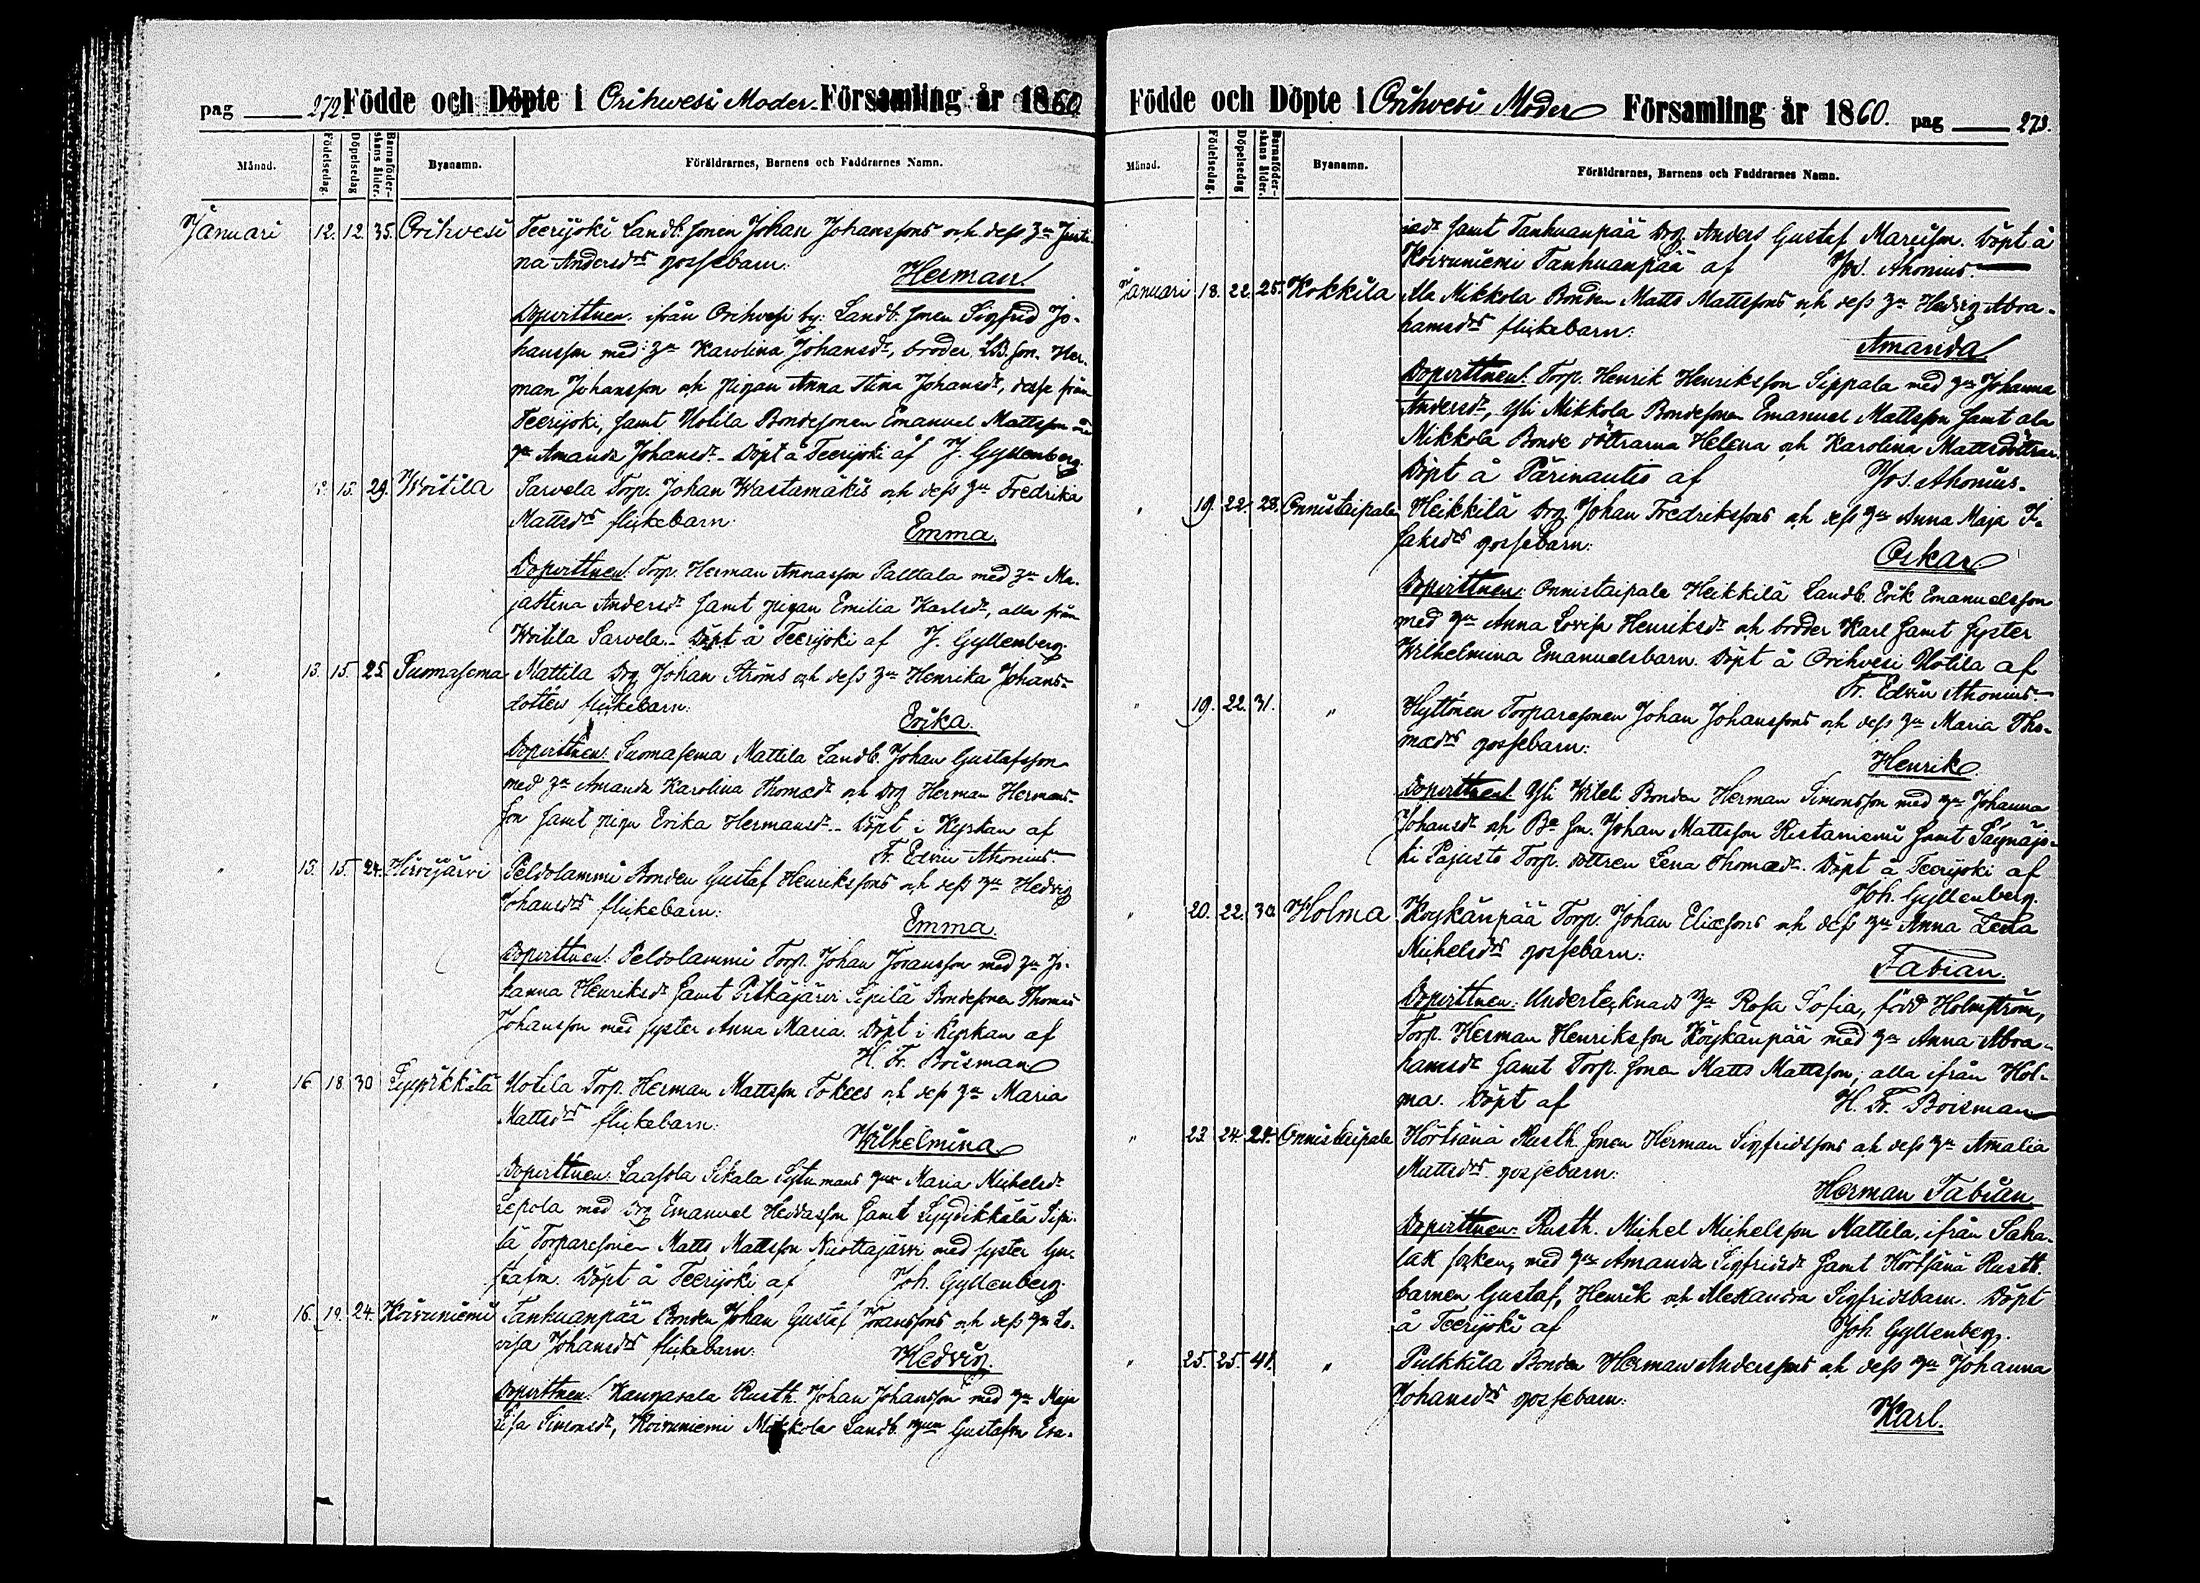 pag 272. Födde och Döpte i Orihvesi Moder Församling år 1860
Månad. Födelsedag. Döpelsedag Barnaföderskans ålder. Byanamn. Föräldrarnes, Barnens och Faddrarnes Namn.
Januari 12. 12. 35. Orihvesi Teerijoki Landb. sonen Johan Johanssons och dess h:u Justi-
na Andersdrs gossebarn:
Herman
Dopvittnen: ifrån Orihvesi by: Landb. sonen Sigfrid Jo-
hansson med h:u Karolina Johansdr, broder LB.son. Her-
man Johansson och pigan Anna Stina Johansdr, desse från
Teerijoki, samt Uotila Bondesonen Emanuel Mattsson med
h:u Amanda Johansdr. Döpt å Teerijoki af J. Gyllenberg.
" 12. 15. 29. Woitila Sarvela Torp. Johan Wastamäkis och dess h:u Fredrika
Mattsdrs flickebarn:
Emma.
Dopvittnen: Torp. Herman Annasson Palttala med h:u Ma-
jastina Andersdr samt pigan Emilia Karlsdr, alla från
Woitila Sarvela. Döpt å Teerijoki af J. Gyllenberg.
" 13. 15. 25. Suomasema Mattila Drg Johan Ströms och dess h:u Henrika Johans-
dotters flickebarn:
Erika.
Dopvittnen: Suomasema Mattila Landb. Johan Gustafsson
med h:u Amanda Karolina Thomædr och Drg Herman Hermans-
son samt pigan Erika Hermansdr. Döpt i Kyrkan af
Fr. Edvin Ahonius.
" 15. 15. 24. Hirvijärvi Peldolammi Bonden Gustaf Henrikssons och dess h:u Hedvig
Johansdrs flickebarn:
Emma.
Dopvittnen: Peldolammi Torp. Johan Joransson med h:u Jo-
hanna Henriksdr samt Pitkäjärvi Sipilä Bondesonen Thomas
Johansson med syster Anna Maria. Döpt i Kyrkan af
H. Fr. Boisman
" 16 18. 30 Lyydikkälä Uotila Torp. Herman Mattsson Tokees och dess h:u Maria
Mattsdrs flickebarn:
Wilhelmina
Dopvittnen: Laasola Sikala h:u Maria Michelsdr
Lepola med drg Emanuel Heddasson samt Lyydikkälä Sipi-
lä Torparesonen Matts Mattsson Nuottajärvi med syster Gu-
stafva. Döpt å Teerijoki af Joh. Gyllenberg.
" 16. 19. 24. Koivuniemi Tanhuanpää Bonden Johan Gustaf Joranssons och dess h:u Lo-
visa Johansdrs flickebarn:
Hedvig.
Dopvittnen: Kangasala Rusth. Johan Johansson med h:u Maja
Lisa Simonsdr, Koivuniemi Mikkola Landb. h:un Gustafva Esa-
Födde och Döpte i Orihvesi Moder Församling år 1860. pag 273.
Månad. Födelsedag. Döpelsedag Barnaföderskans ålder. Byanamn. Föräldrarnes, Barnens och Faddrarnes Namn.
iædr samt Tanhuanpää Drg. Anders Gustaf Mareisson. Döpt å
Koivuniemi Tanhuanpää af Jos. Ahonius.
Januari 18. 22. 25. Kokkila Ala Mikkola Bonden Matts Mattssons och dess h:u Hedvig Abra-
hamsdrs flickebarn:
Amanda
Dopvittnen: Torp. Henrik Henriksson Sippala med h:u Johanna
Andersdr, Yli Mikkola Bondesonen Emanuel Mattsson samt ala
Mikkola Bonde döttrarna Helena och Karolina Mattsdöttrar.
Döpt å Pärinautio af Jos. Ahonius.
" 19. 22. 28. Onnistaipale Heikkilä Drg. Johan Fredrikssons och dess h:u Anna Maja I-
saksdrs gossebarn:
Oskar
Dopvittnen: Onnistaipale Heikkilä Landb. Erik Emanuelsson
med h:u Anna Lovisa Henriksdr och broder Karl samt syster
Wilhelmina Emanuelsbarn. Döpt å Orihvesi Uotila af
Fr. Edvin Ahonius.
" 19. 22. 31. " Hyttinen Torparesonen Johan Johanssons och dess h:u Maria Tho-
mædrs gossebarn:
Henrik.
Dopvittnen: Yli Wileli Bonden Herman Simonsson med h:u Johanna
Johansdr och Be sn. Johan Mattsson Kistaniemi samt Säynäjo-
ki Pajusto Torp. dottren Lena Thomædr. Döpt å Teerijoki af
Joh. Gyllenberg.
" 20. 22. 30. Holma Köykänpää Torp. Johan Eliæsons och dess h:u Anna Lena
Michelsdrs gossebarn:
Fabian.
Dopvittnen: Undertecknads h:u Rosa Sofia, född Holmström,
Torp. Herman Henriksson Köykänpää med h:u Anna Abra-
hamsdr samt Torp. sonen Matts Mattsson, alla ifrån Hol-
ma. Döpt af H. Fr. Boisman
" 23. 24. 24. Onnistaipale Hörtsänä Rusth. sonen Herman Sigfridssons och dess h:u Amalia
Mattsdrs gossebarn:
Herman Fabian
Dopvittnen: Rusth. Michel Michelsson Mattila, ifrån Saha-
lax socken, med h:u Amanda Sigfridsdr samt Hörtsänä Rusth.
barnen Gustaf, Henrik och Alexandra Sigfridsbarn. Döpt
å Teerijoki af Joh. Gyllenberg.
" 25. 25. 41. " Pulkkila Bonden Herman Anderssons och dess h:u Johanna
Johansdrs gossebarn:
Karl.